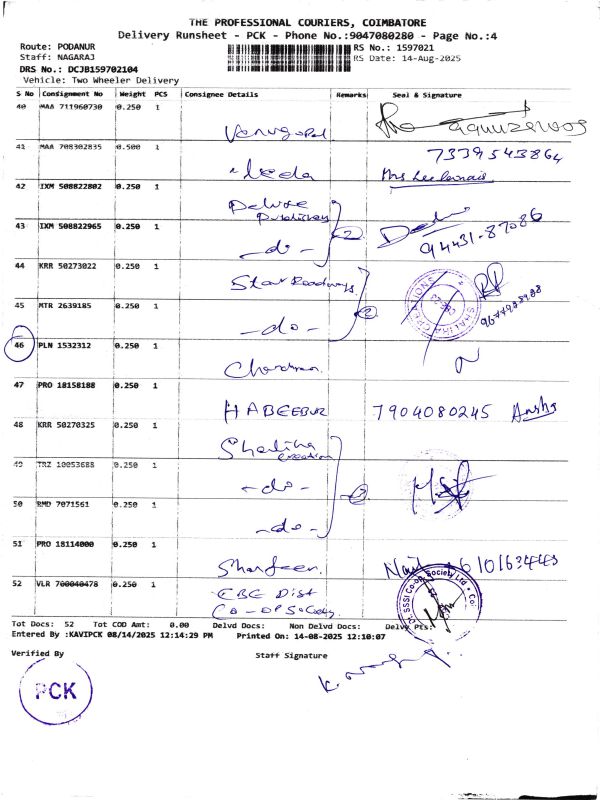 THE PROFESSIONAL COURIERS, COIMBATORE
Delivery Runsheet - PCK - Phone No.:9047080280 - Page No.:4
Route: PODANUR
Staff: NAGARAJ
DRS No.: DCJB159702104
Vehicle: Two Wheeler Delivery
RS No.: 1597021
RS Date: 14-Aug-2025
S No Consignment No Weight PCS Consignee Details Remarks Seal & Signature
40 MAA 711960730 0.250 1 Venugopal
41 MAA 708302835 0.500 1 Leela 7339543864
42 IXM 508822802 0.250 1 Deluxe
43 IXM 508822965 0.250 1 -do- 2 94431-87086
44 KRR 50273022 0.250 1 Star Roadways
45 MTR 2639185 0.250 1 -do- 2
46 PLN 1532312 0.250 1
47 PRO 18158188 0.250 1 HABEEBUR 7904080245
48 KRR 50270325 0.250 1 Shaliha Creation
49 TRZ 10053688 0.250 1 -do-
50 RMD 7071561 0.250 1 -do-
51 PRO 18114000 0.250 1
52 VLR 700040478 0.250 1 CBE Dist
CO-OP Society
SHALIHA CREATIONS
Tot Docs: 52 Tot COD Amt: 0.00 Delvd Docs: Non Delvd Docs: Delvy Pts:
Entered By :KAVIPCK 08/14/2025 12:14:29 PM Printed On: 14-08-2025 12:10:07
Verified By
Staff Signature
PCK